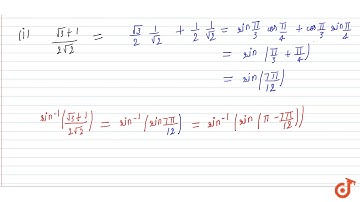 (i) (√3+1)/(2√2) = √3/2 1/√2 + 1/2 1/√2 = sin π/3 cos π/4 + cos π/3 sin π/4
= sin (π/3 + π/4)
= sin (7π/12)
sin⁻¹((√3+1)/(2√2)) = sin⁻¹(sin 7π/12) = sin⁻¹(sin (π - 7π/12))